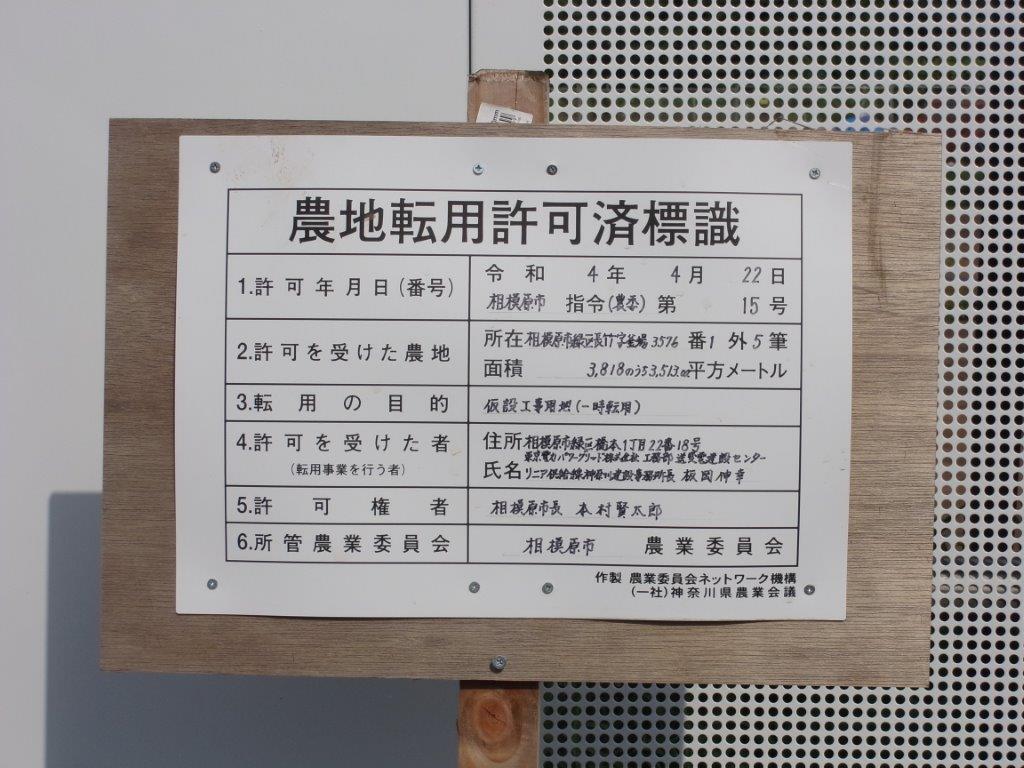 農地転用許可済標識
1.許可年月日(番号)
令和 4年 4月 22日
相模原市 指令(農委)第 15号
2.許可を受けた農地
所在 相模原市緑区長竹字釜場3576番1 外5筆
面積 3,818のうち3,513.02平方メートル
3.転用の目的
仮設工事用地(一時転用)
4.許可を受けた者
(転用事業を行う者)
住所 相模原市緑区橋本1丁目22番18号
東京電力パワーグリッド株式会社 工務部 送変電建設センター
氏名 リニア供給線神奈川建設事務所長 板岡伸幸
5.許可権者
相模原市長 本村賢太郎
6.所管農業委員会
相模原市 農業委員会
作製 農業委員会ネットワーク機構
(一社)神奈川県農業会議